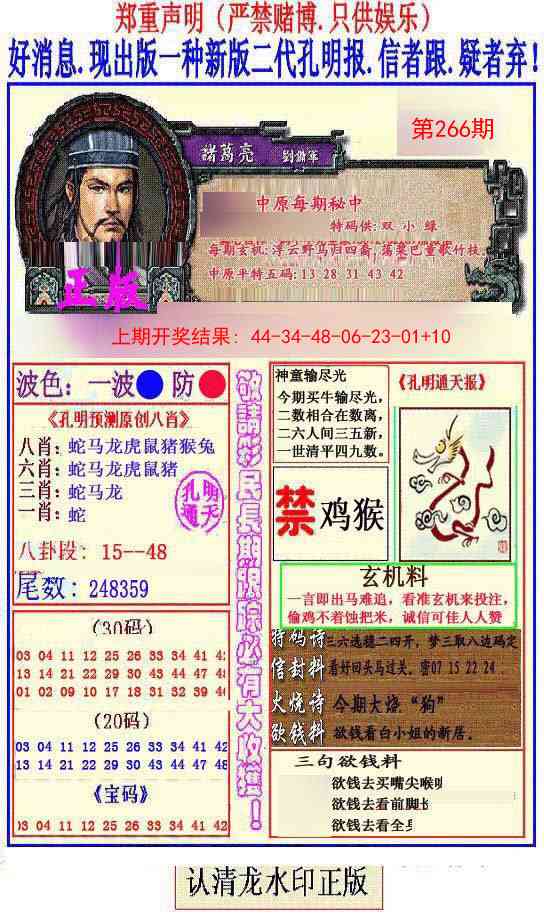 郑重声明（严禁赌博.只供娱乐）
好消息.现出版一种新版二代孔明报.信者跟.疑者弃！
第266期
諸葛亮 劉備軍
中原每期秘中
特码供: 双 小 绿
每期玄机:浮云野鸟归四
巴童歌竹枝.
中原平特五码: 13 28 31 43 42
正版
上期开奖结果: 44-34-48-06-23-01+10
波色: 一波 防
《孔明预测原创八肖》
八肖: 蛇马龙虎鼠猪猴兔
六肖: 蛇马龙虎鼠猪
三肖: 蛇马龙
一肖: 蛇
孔明
通天
八卦段: 15--48
尾数: 248359
(30码)
03 04 11 12 25 26 33 34 41 4
13 14 21 22 28 29 36 37 44 4
01 02 09 10 17 18 31 32 39 4
(20码)
03 04 11 12 25 26 33 34 41 42
13 14 21 22 28 29 36 37 44 45
《宝码》
03 04 11 12 25 26 33 34 41 42
敬請彩民長期跟踪必有大收獲！
神童输尽光
今期买牛输尽光，
二数相合在数离，
二六人间三五新，
一世清平四九数。
《孔明通天报》
禁 鸡猴
玄机料
一言即出马难追，看准玄机来投注，
偷鸡不着蚀把米，诚信可佳人人赞
特码诗 三六选穗二四开，梦三取八边码定
信封料 看好回头马过关。密07 15 22 24
火烧诗 今期大烧“狗”
欲钱料 欲钱看白小姐的新居。
三句欲钱料
欲钱去买嘴尖喉
欲钱去看前脚
欲钱去看全身
认清龙水印正版